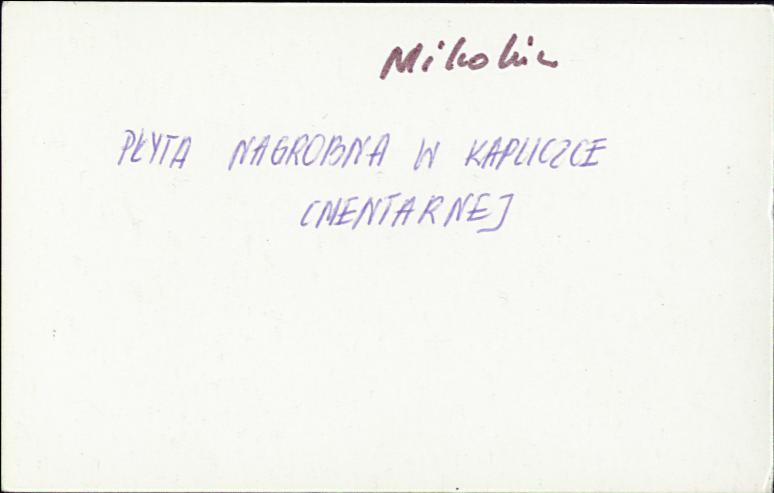 Mikolin
PŁYTA NAGROBNA W KAPLICZCE
CMENTARNEJ